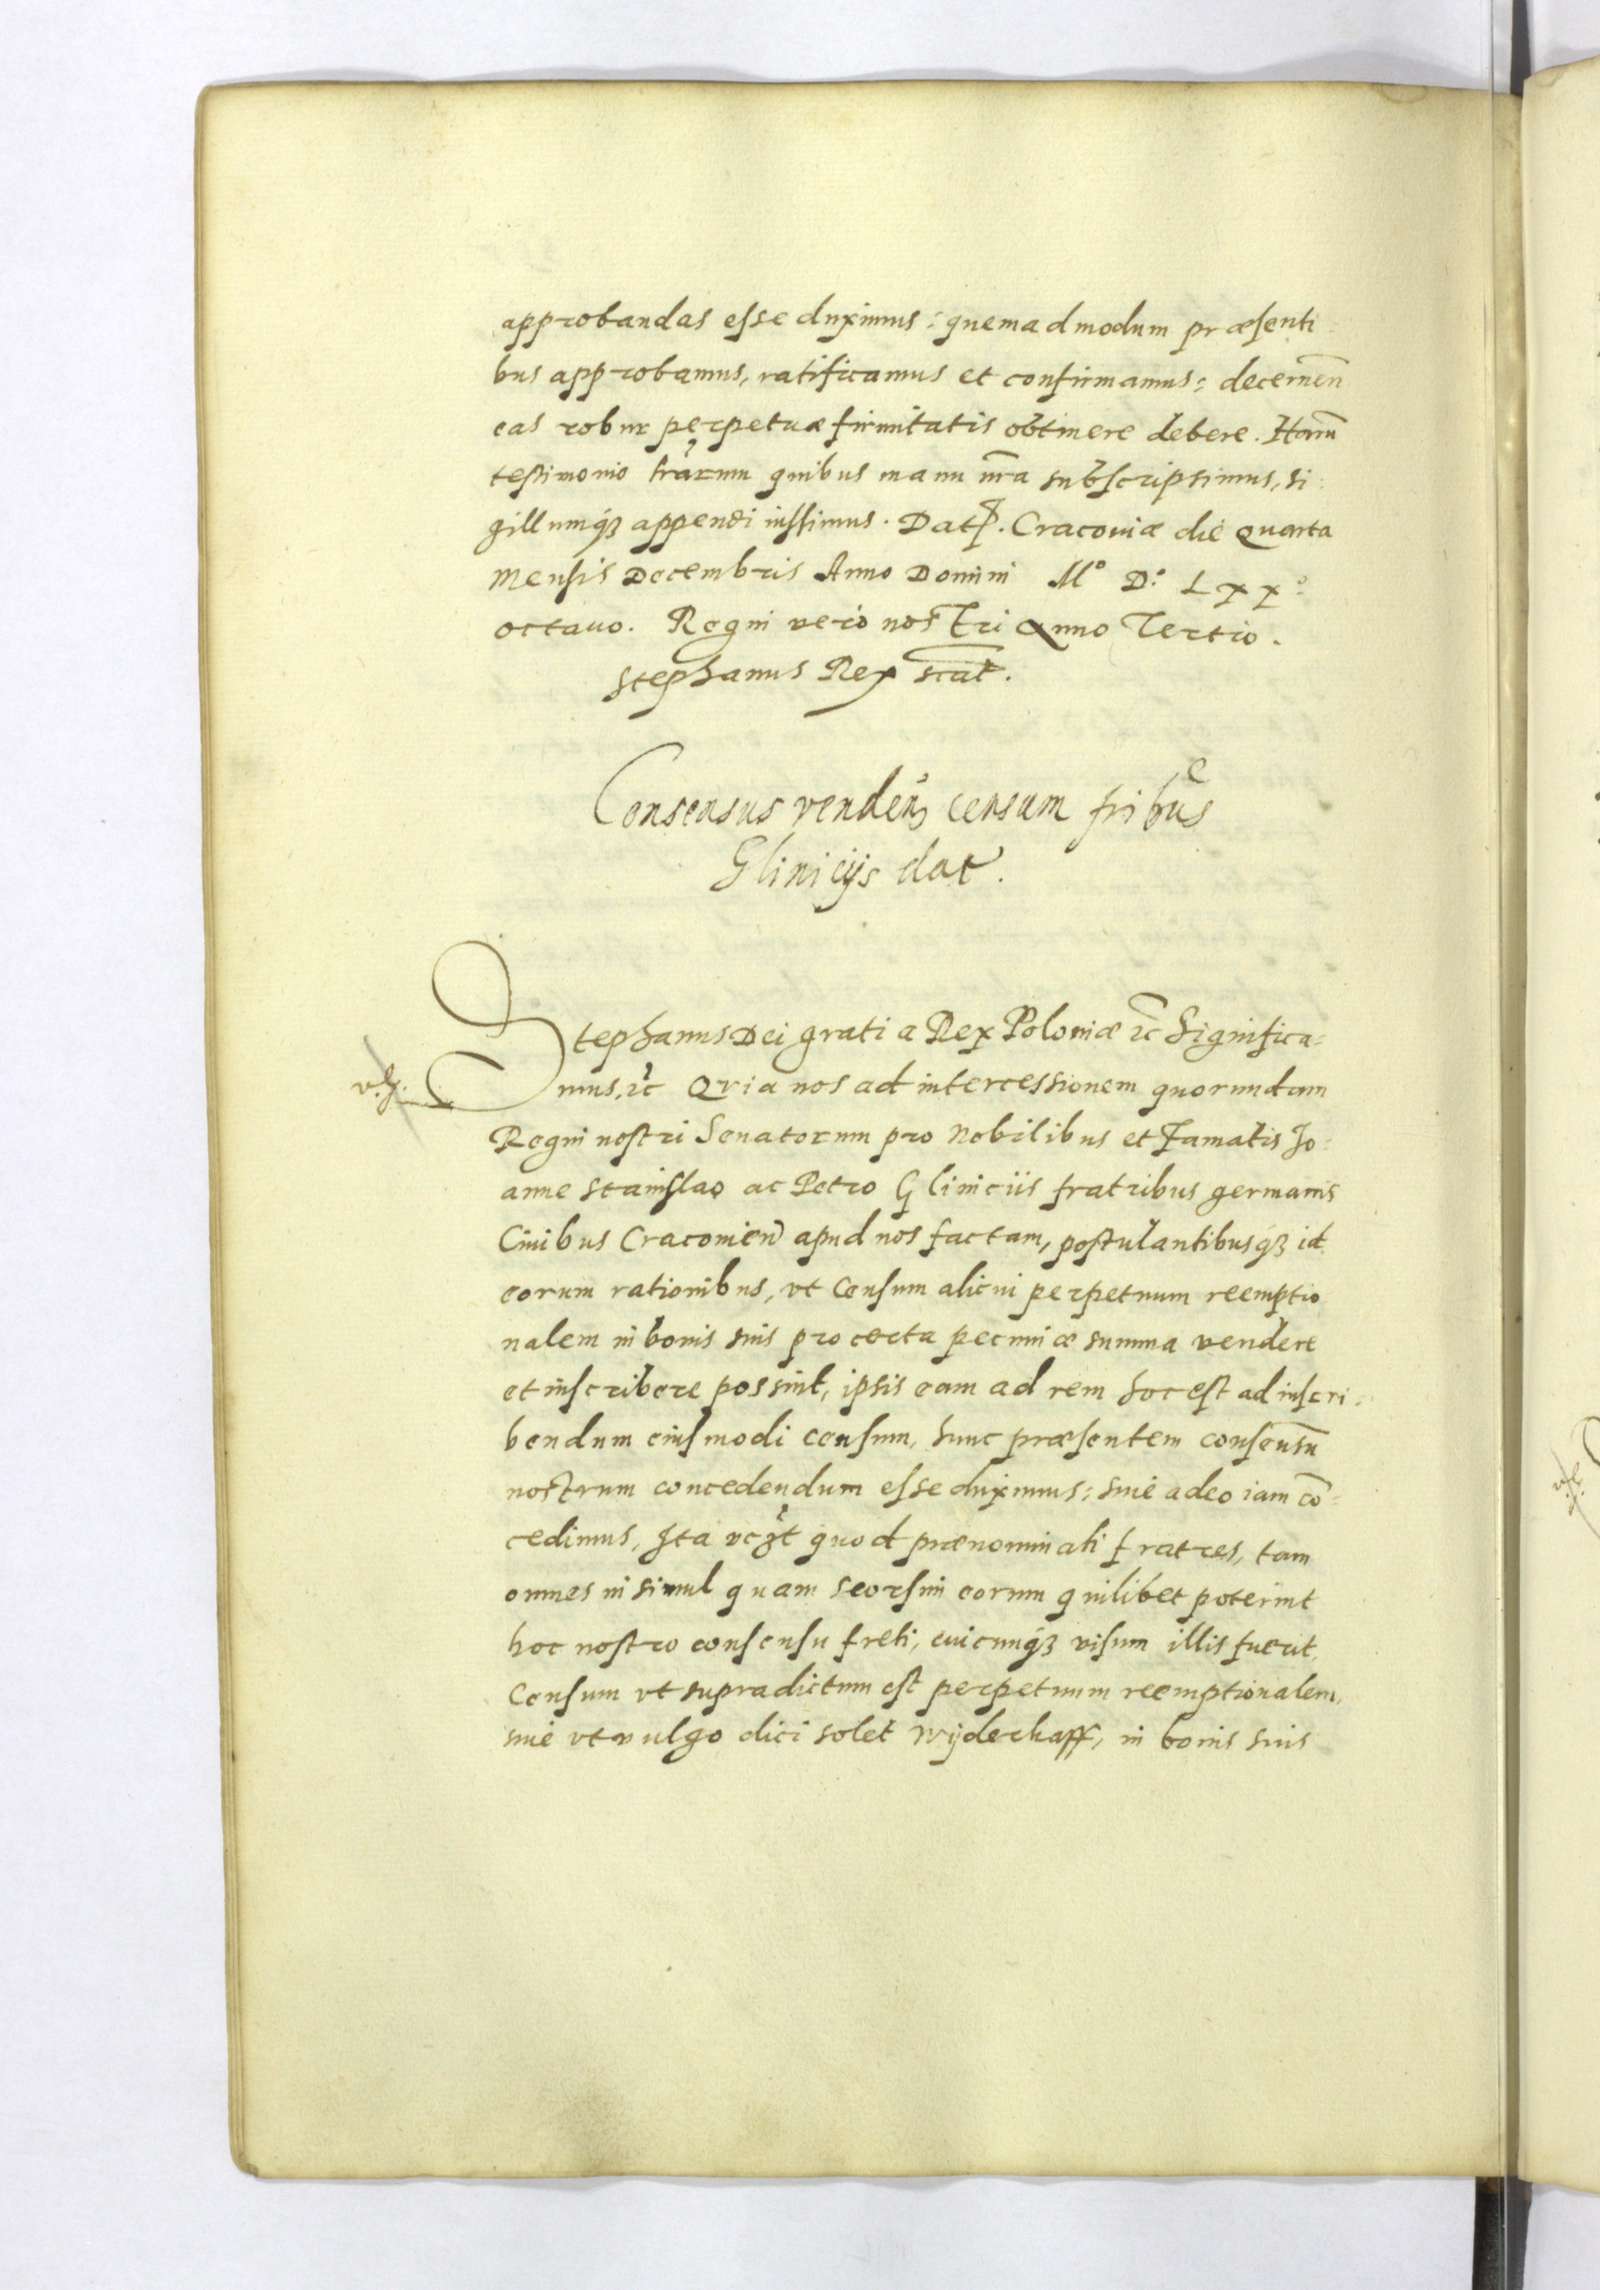 approbandas esse duximus: quemadmodum præsenti
bus approbamus, ratificamus et confirmamus: decernen̄
eas robur perpetuæ firmitatis obtinere debere. Harū
testimonio lrārum quibus manu nr̄a subscripsimus, si
gillumq́ꝫ appendi iussimus. Dat. Cracouiæ die Quarta
Mensis Decembris Anno Domini M° D° Lxx°
octauo. Regni vero nostri Anno Tertio.
Stephanus Rex sc̄at.
Consensus venden̄ censum fribūs
Glinicijs dat.
Stephanus Dei gratia Rex Poloniæ ꝛc̄ Significa-
mus, ꝛc̄ Quia nos ad intercessionem quorundam
Regni nostri Senatorum pro Nobilibus et Famatis Jo-
anne Stanislao ac Petro Gliniciis fratribus germanis
Ciuibus Cracouien̄ apud nos factam, postulantibusq́ꝫ id
eorum rationibus, vt Censum alicui perpetuum reemptio
nalem in bonis suis pro certa pecuniæ summa vendere
et inscribere possint, ipsis eam ad rem hoc est ad inscri-
bendum eiusmodi censum, hunc præsentem consensū
nostrum concedendum esse duximus: siue adeo iam cō-
cedimus, Ita vꝫt quod prænominati fratres, tam
omnes insimul quam seorsim eorum quilibet poterint
hoc nostro consensu freti, cuicunq́ꝫ visum illis fuerit,
Censum vt supradictum est perpetuum reemptionalem,
siue vt vulgo dici solet Wyderkaff, in bonis suis